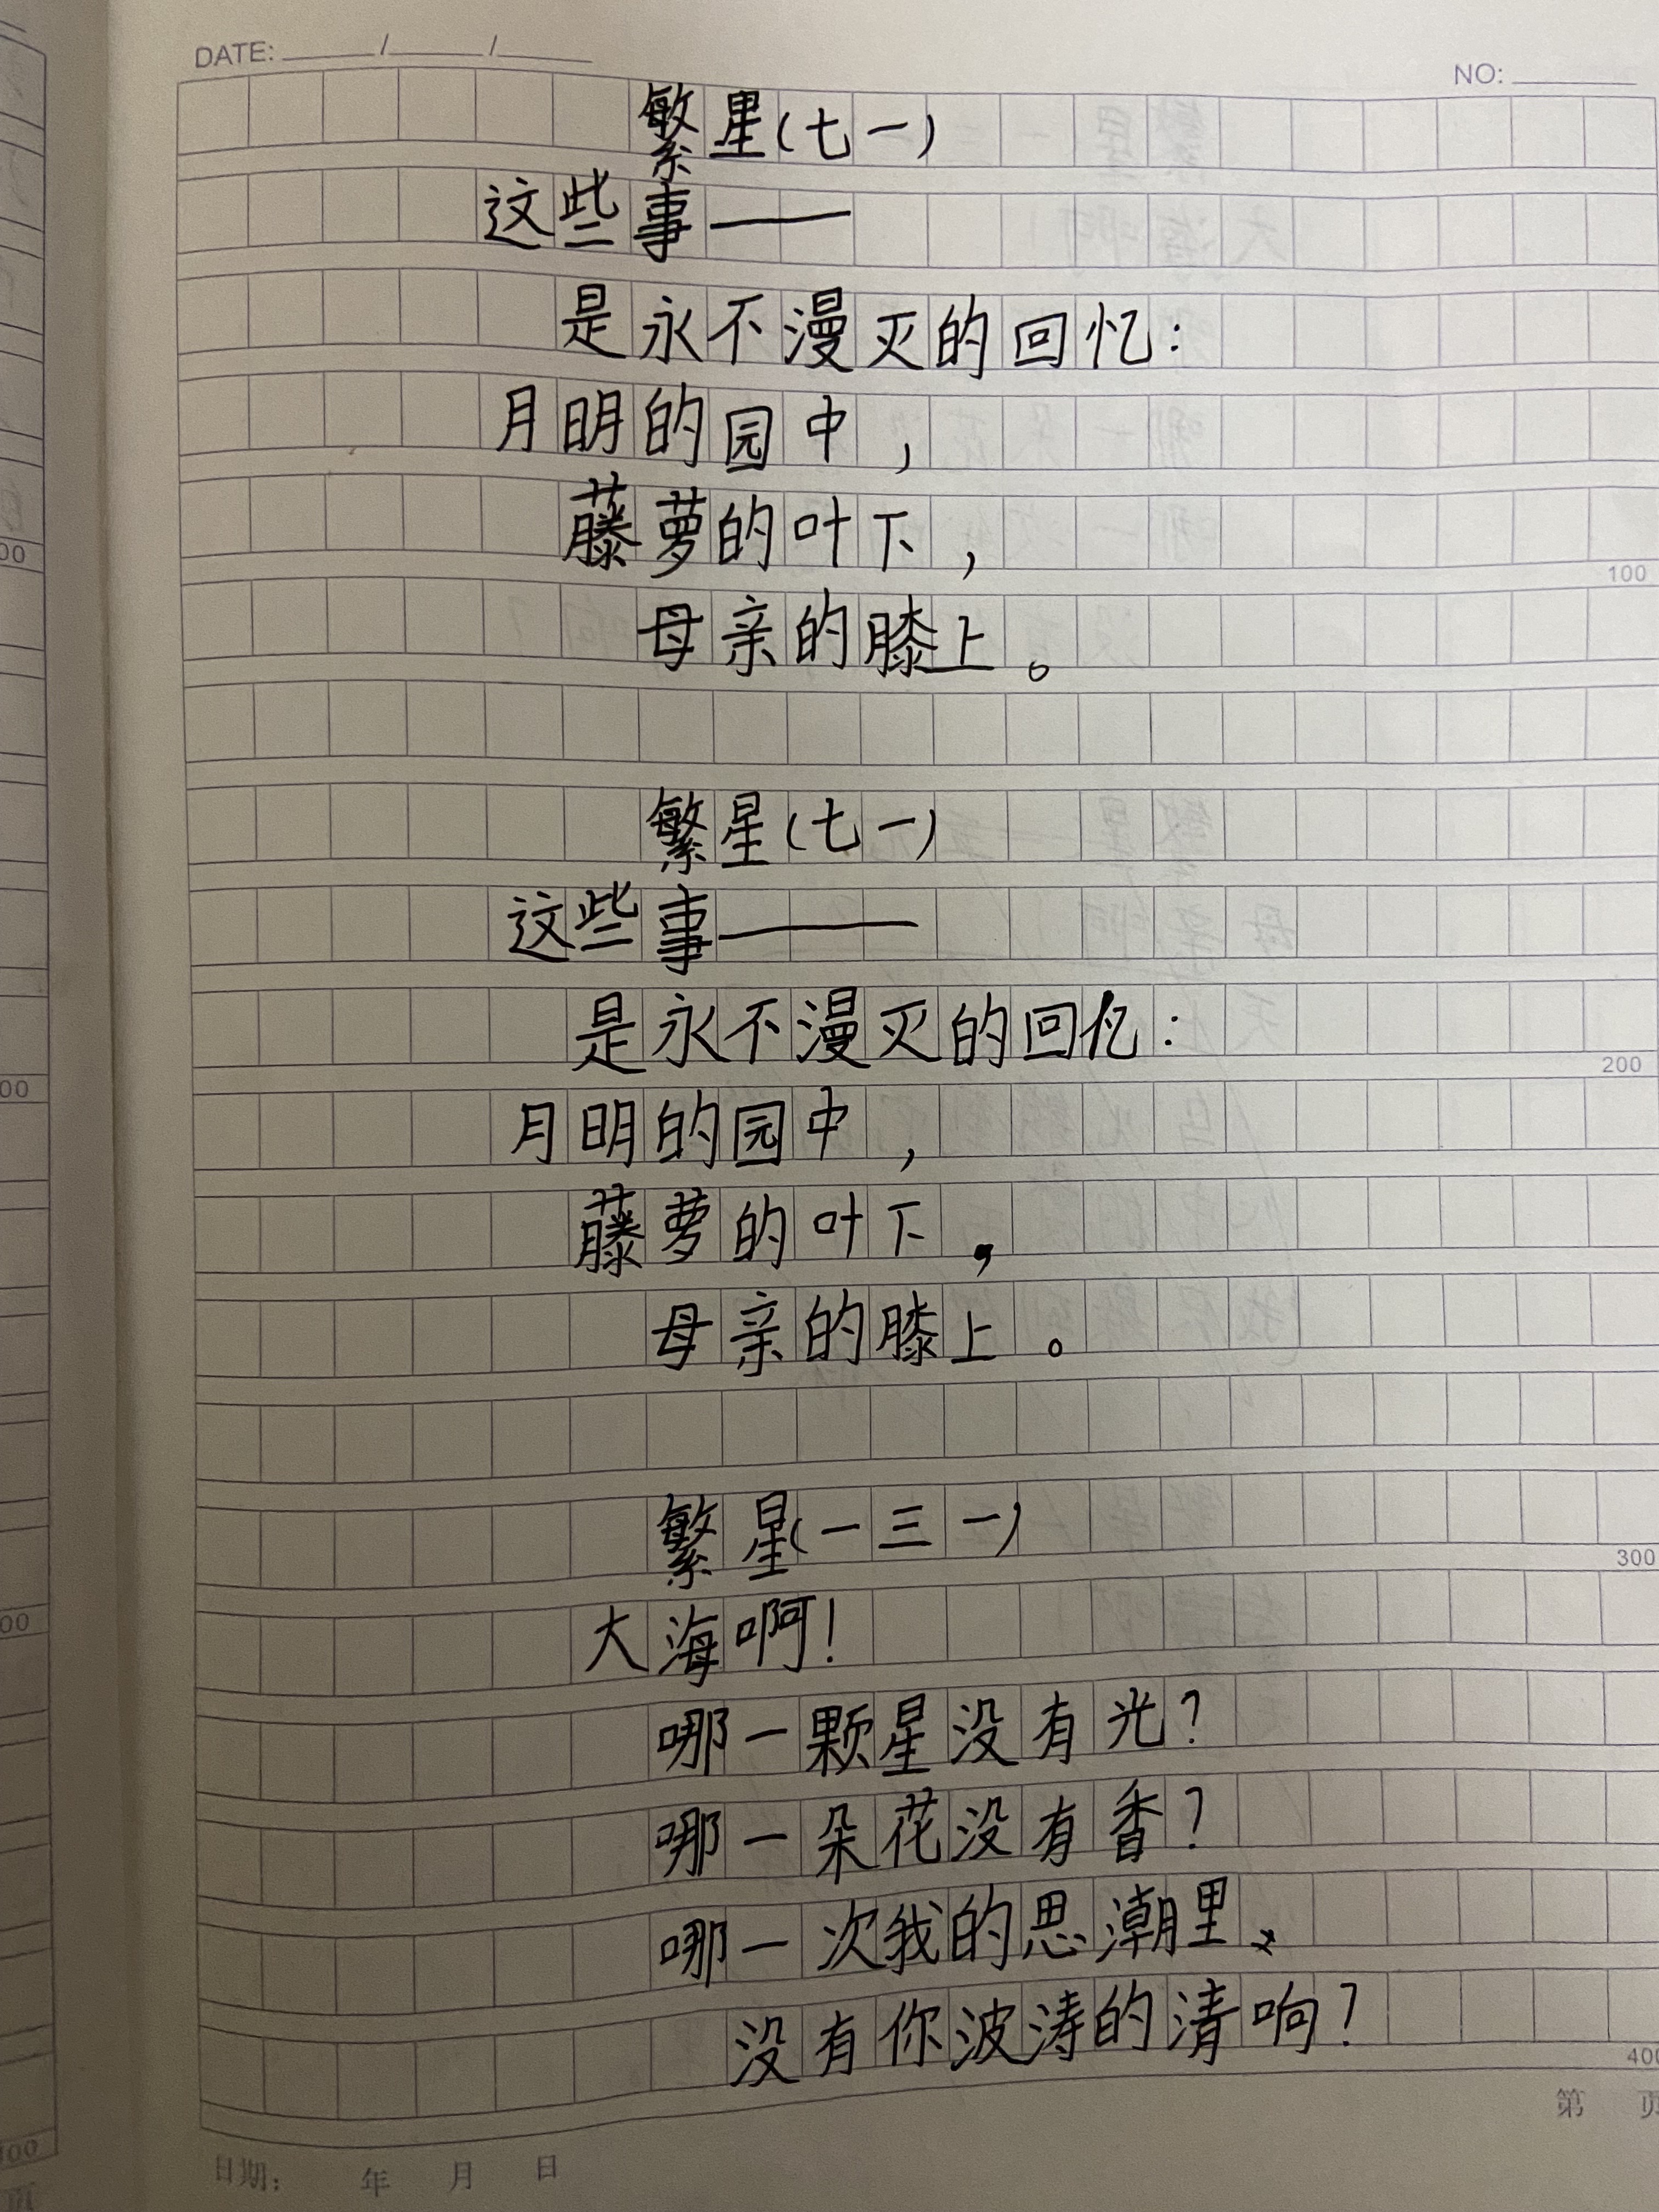 DATE: ____/____/____
NO: ______
繁星(七一)
这些事——
是永不漫灭的回忆:
月明的园中,
藤萝的叶下,
100
母亲的膝上。
繁星(七一)
这些事———
是永不漫灭的回忆:
200
月明的园中,
藤萝的叶下,
母亲的膝上。
繁星(一三一)
300
大海啊!
哪一颗星没有光?
哪一朵花没有香?
哪一次我的思潮里、
没有你波涛的清响?
400
第 页
日期: 年 月 日